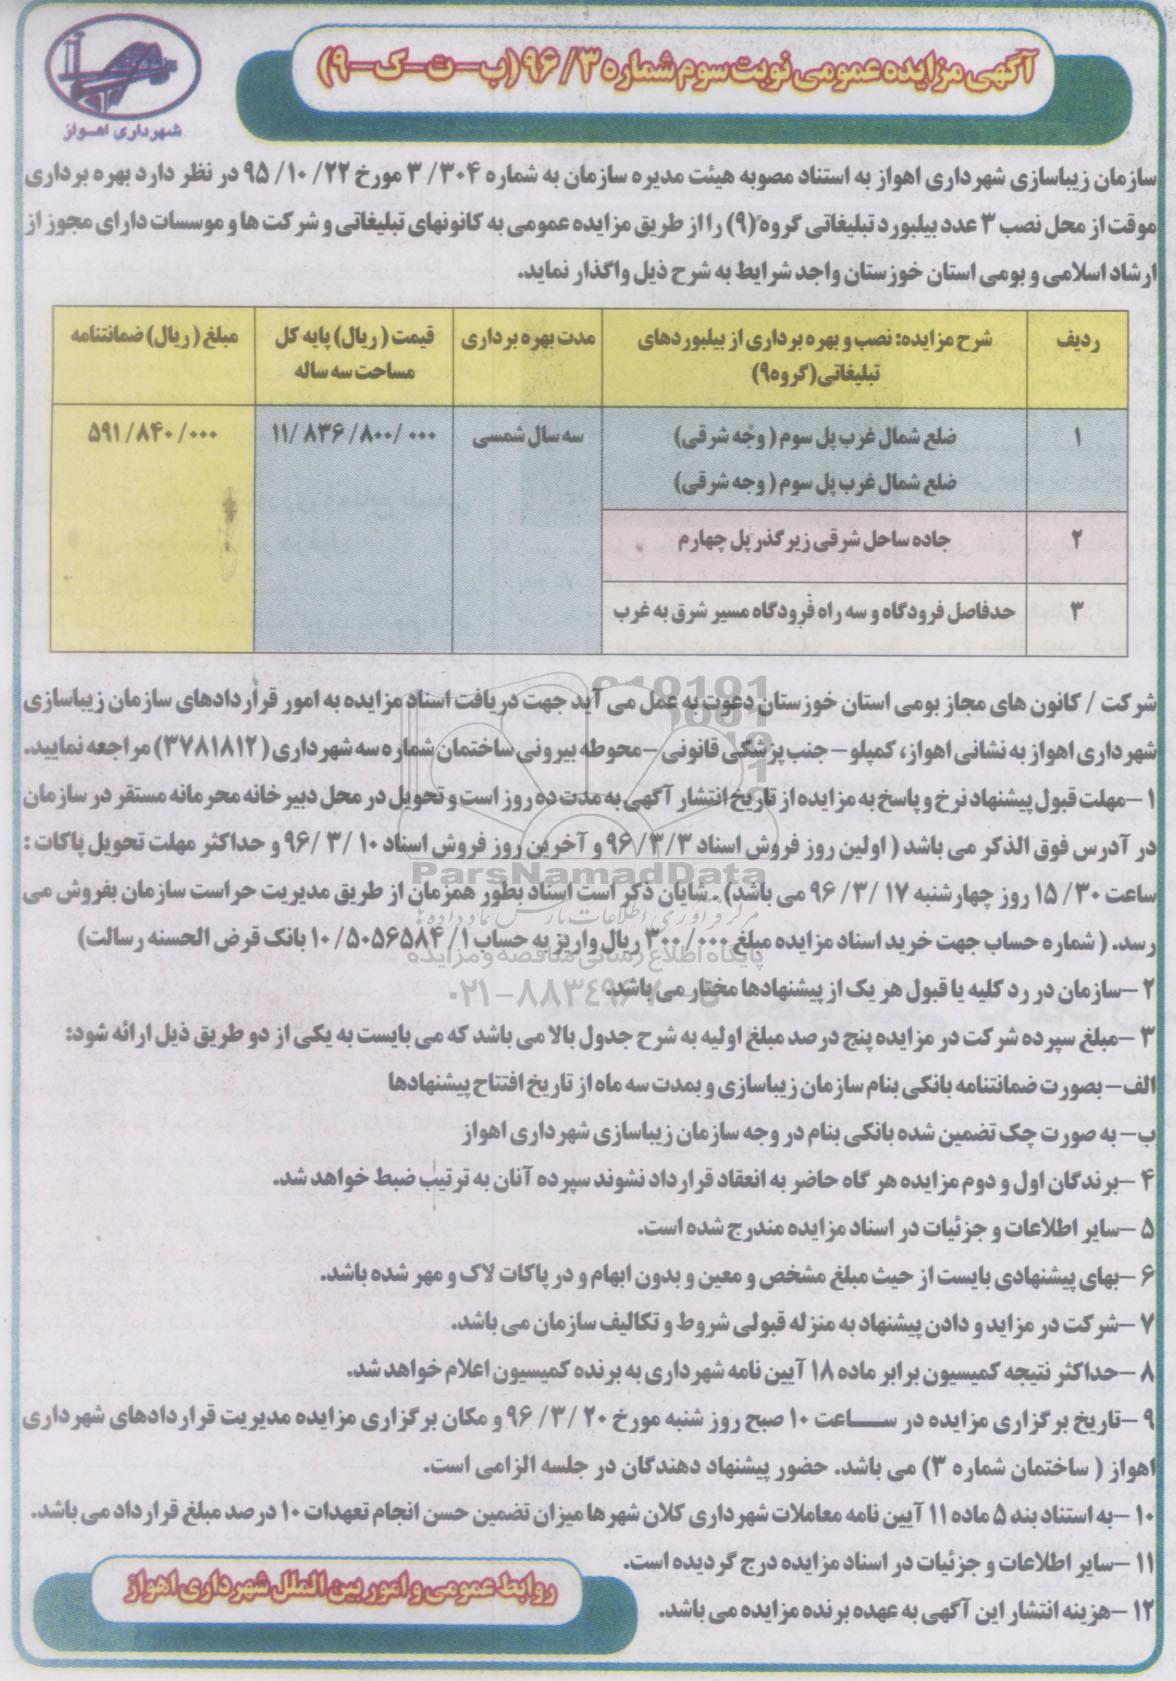 آگهی مزایده عمومی نوبت سوم شماره ۹۶/۳ (ب-ت-ک-۹)
شهرداری اهواز
سازمان زیباسازی شهرداری اهواز به استناد مصوبه هیئت مدیره سازمان به شماره ۳/۳۰۴ مورخ ۹۵/۱۰/۲۲ در نظر دارد بهره برداری
موقت از محل نصب ۳ عدد بیلبورد تبلیغاتی گروه (۹) را از طریق مزایده عمومی به کانونهای تبلیغاتی و شرکت ها و موسسات دارای مجوز از
ارشاد اسلامی و بومی استان خوزستان واجد شرایط به شرح ذیل واگذار نماید.
ردیف
شرح مزایده: نصب و بهره برداری از بیلبوردهای
تبلیغاتی (گروه۹)
مدت بهره برداری
قیمت (ریال) پایه کل
مساحت سه ساله
مبلغ (ریال) ضمانتنامه
۱
ضلع شمال غرب پل سوم (وجه شرقی)
ضلع شمال غرب پل سوم (وجه شرقی)
سه سال شمسی
۱۱/۸۳۶/۸۰۰/۰۰۰
۵۹۱/۸۴۰/۰۰۰
۲
جاده ساحل شرقی زیرگذر پل چهارم
۳
حدفاصل فرودگاه و سه راه فرودگاه مسیر شرق به غرب
شرکت / کانون های مجاز بومی استان خوزستان دعوت به عمل می آید جهت دریافت اسناد مزایده به امور قراردادهای سازمان زیباسازی
شهرداری اهواز به نشانی اهواز، کمپلو – جنب پزشکی قانونی – محوطه بیرونی ساختمان شماره سه شهرداری (۳۷۸۱۸۱۲) مراجعه نمایید.
۱ –مهلت قبول پیشنهاد نرخ و پاسخ به مزایده از تاریخ انتشار آگهی به مدت ده روز است و تحویل در محل دبیرخانه محرمانه مستقر در سازمان
در آدرس فوق الذکر می باشد (اولین روز فروش اسناد ۹۶/۳/۳ و آخرین روز فروش اسناد ۹۶/۳/۱۰ و حداکثر مهلت تحویل پاکات :
ساعت ۱۵/۳۰ روز چهارشنبه ۹۶/۳/۱۷ می باشد). شایان ذکر است اسناد بطور همزمان از طریق مدیریت حراست سازمان بفروش می
رسد. (شماره حساب جهت خرید اسناد مزایده مبلغ ۳۰۰/۰۰۰ ریال واریز به حساب ۱۰/۵۰۵۶۵۸۴/۱ بانک قرض الحسنه رسالت)
۲ –سازمان در رد کلیه یا قبول هر یک از پیشنهادها مختار می باشد.
۳ –مبلغ سپرده شرکت در مزایده پنج درصد مبلغ اولیه به شرح جدول بالا می باشد که می بایست به یکی از دو طریق ذیل ارائه شود:
الف– بصورت ضمانتنامه بانکی بنام سازمان زیباسازی و بمدت سه ماه از تاریخ افتتاح پیشنهادها
ب– به صورت چک تضمین شده بانکی بنام در وجه سازمان زیباسازی شهرداری اهواز
۴ –برندگان اول و دوم مزایده هر گاه حاضر به انعقاد قرارداد نشوند سپرده آنان به ترتیب ضبط خواهد شد.
۵ –سایر اطلاعات و جزئیات در اسناد مزایده مندرج شده است.
۶ –بهای پیشنهادی بایست از حیث مبلغ مشخص و معین و بدون ابهام و در پاکات لاک و مهر شده باشد.
۷ –شرکت در مزاید و دادن پیشنهاد به منزله قبولی شروط و تکالیف سازمان می باشد.
۸ –حداکثر نتیجه کمیسیون برابر ماده ۱۸ آیین نامه شهرداری به برنده کمیسیون اعلام خواهد شد.
۹ –تاریخ برگزاری مزایده در ساعت ۱۰ صبح روز شنبه مورخ ۹۶/۳/۲۰ و مکان برگزاری مزایده مدیریت قراردادهای شهرداری
اهواز (ساختمان شماره ۳) می باشد. حضور پیشنهاد دهندگان در جلسه الزامی است.
۱۰ –به استناد بند ۵ ماده ۱۱ آیین نامه معاملات شهرداری کلان شهرها میزان تضمین حسن انجام تعهدات ۱۰ درصد مبلغ قرارداد می باشد.
۱۱ –سایر اطلاعات و جزئیات در اسناد مزایده درج گردیده است.
۱۲ –هزینه انتشار این آگهی به عهده برنده مزایده می باشد.
روابط عمومی و امور بین الملل شهرداری اهواز
ParsNamadData
مرکز فرآوری اطلاعات پارس نماد داده ها
پایگاه اطلاع رسانی مناقصه و مزایده